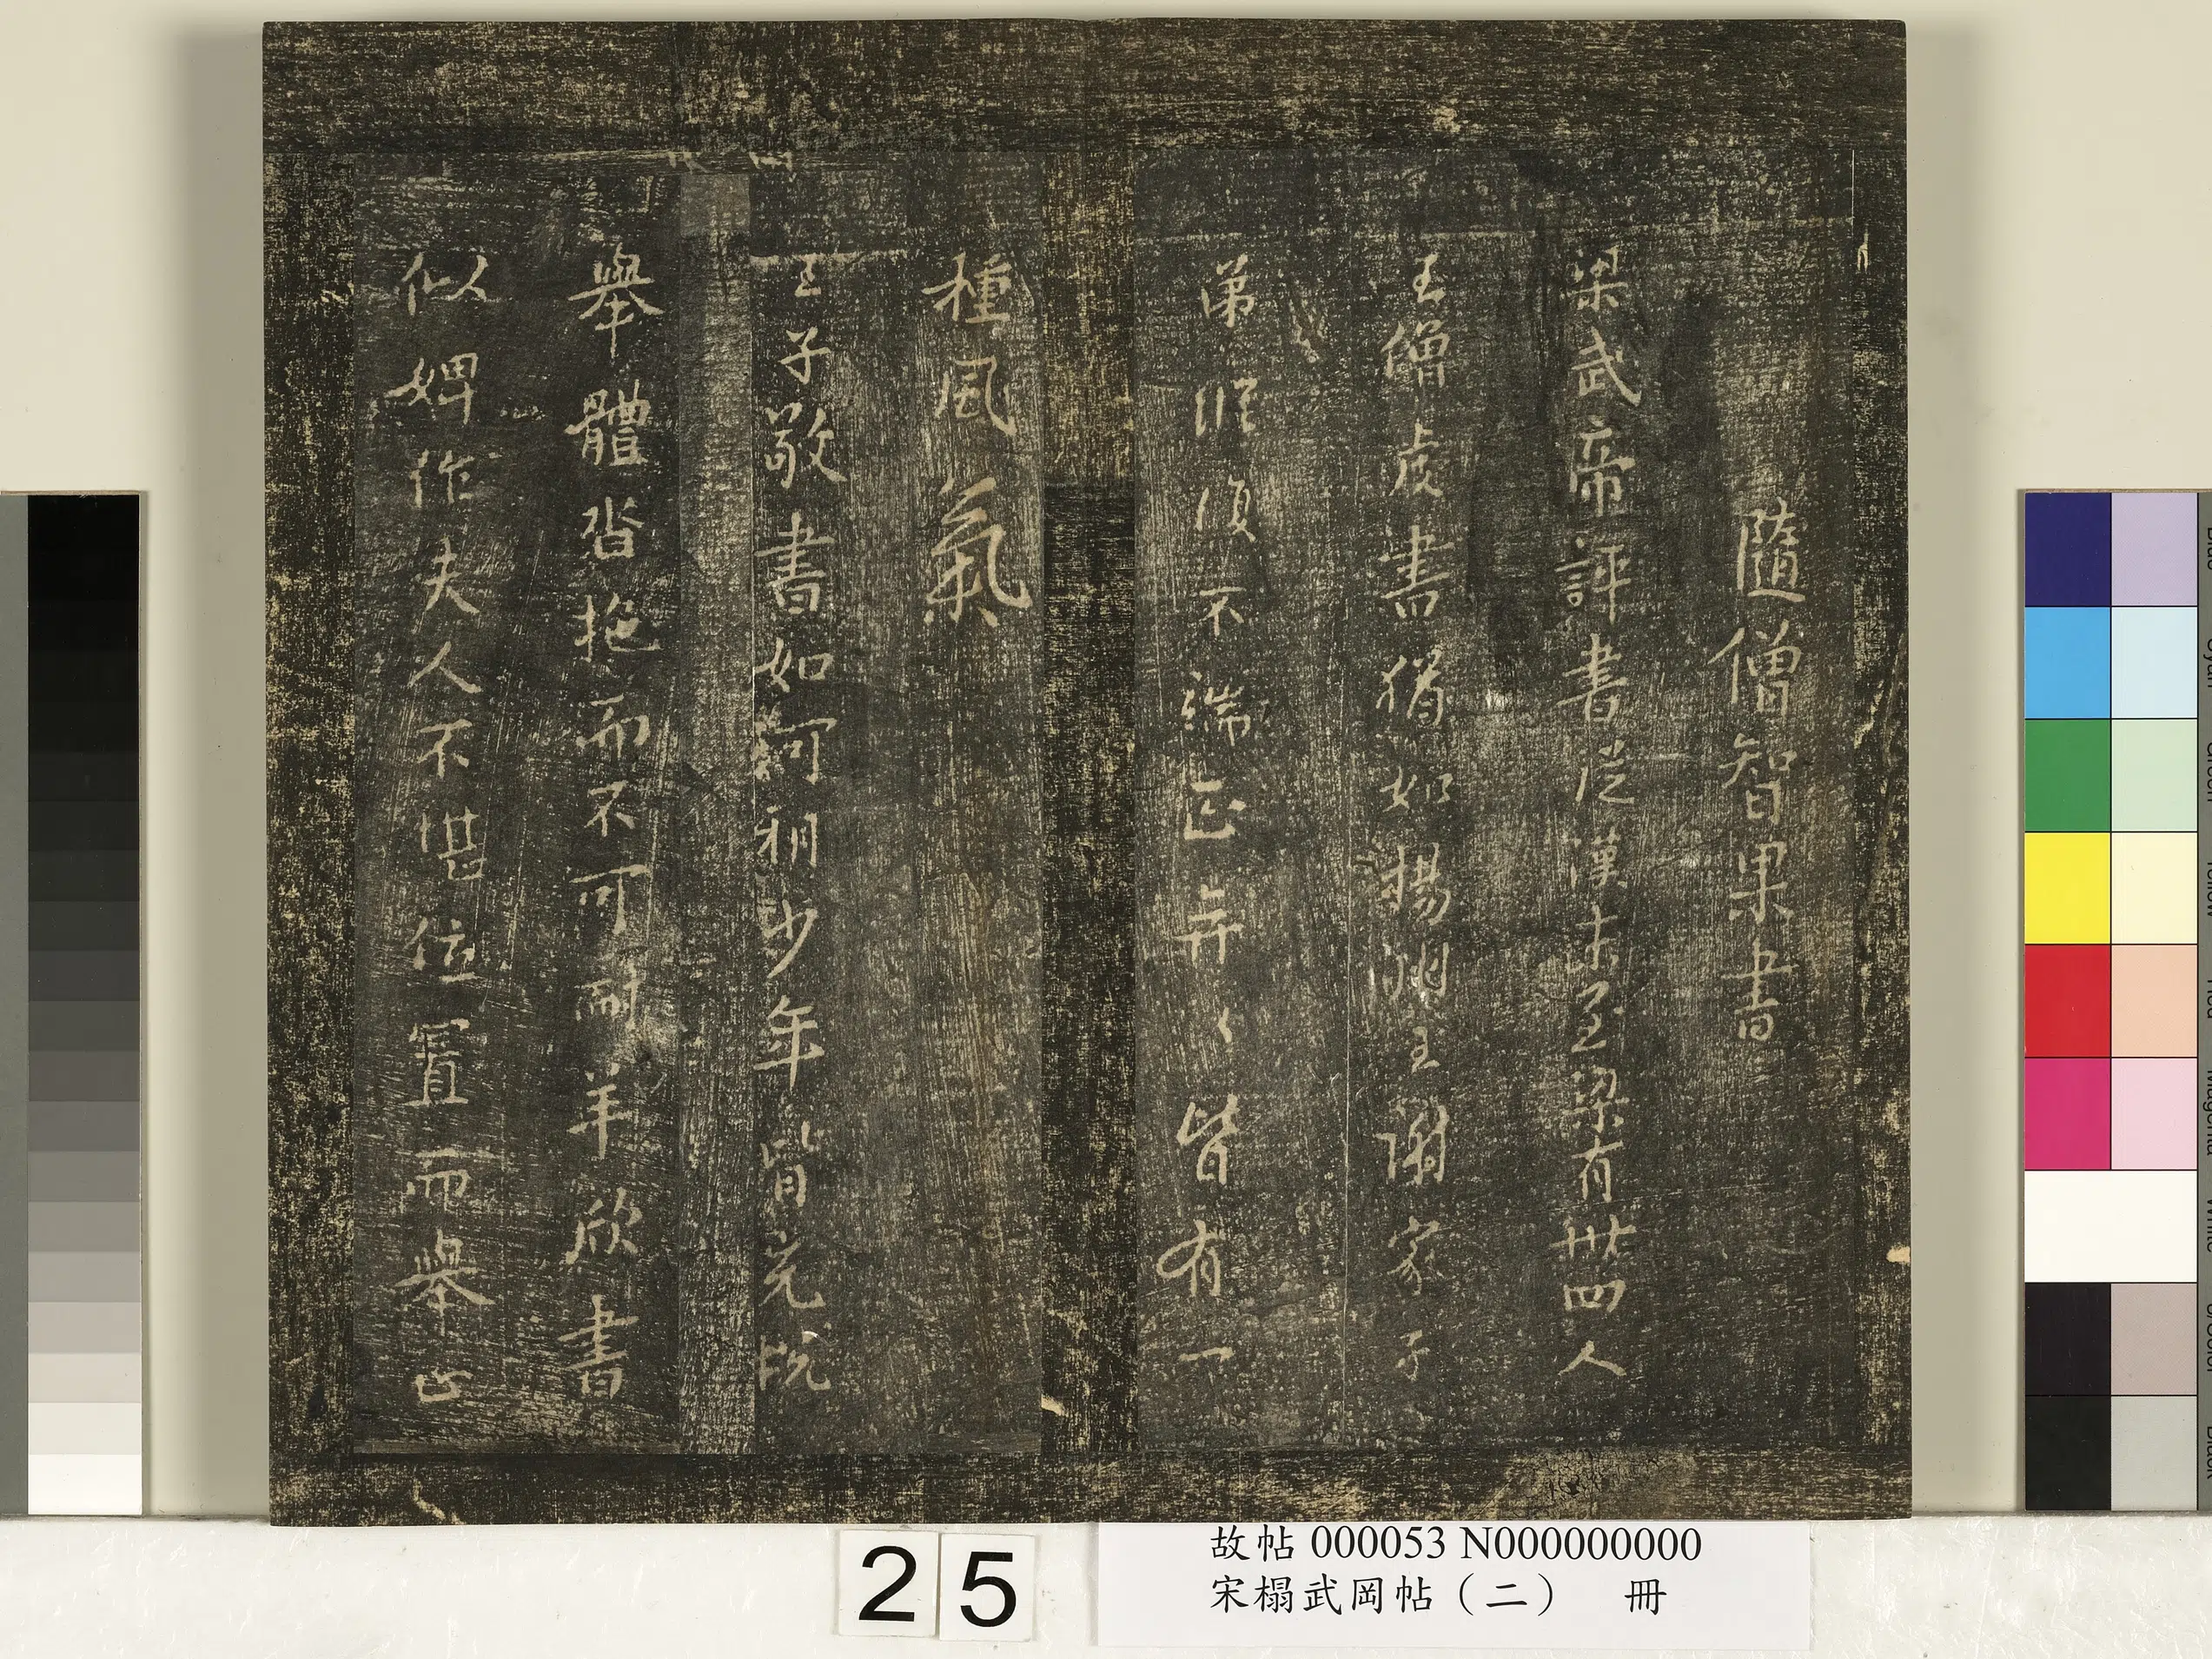 隨僧智果書
梁武帝評書從漢末至梁有卅四人
王僧虔書猶如揚州王謝家子
弟縱復不端正奕々皆有一
種風氣
王子敬書如河朔少年皆充悅
舉體沓拖而不可耐羊欣書
似婢作夫人不堪位置而舉止
25
故帖 000053 N000000000
宋榻武岡帖（二） 冊